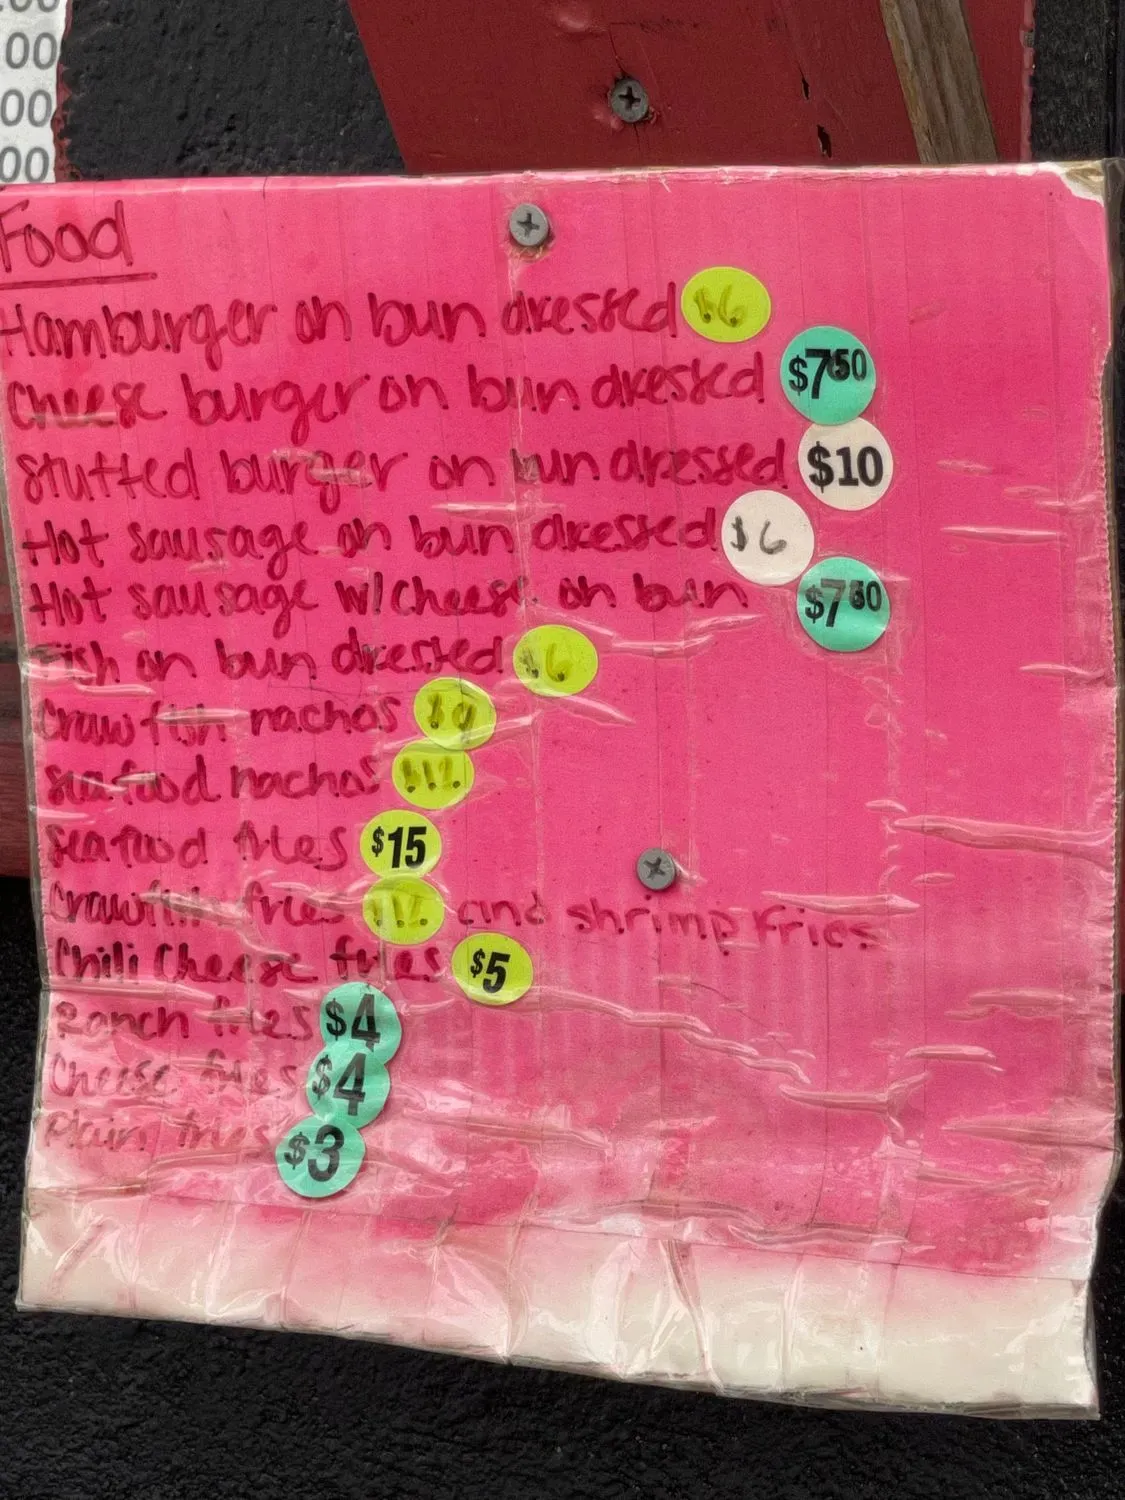 .00
00
00
00
Food
Hamburger on bun dressed $6
Cheese burger on bun dressed $7.50
Stuffed burger on bun dressed $10
Hot sausage on bun dressed $6
Hot sausage w/cheese on bun $7.50
Fish on bun dressed $6
Crawfish nachos $9
Seafood nachos
Seafood fries $15
Crawfish fries and shrimp fries
Chili Cheese fries $5
Ranch fries $4
Cheese fries $4
Plain fries $3